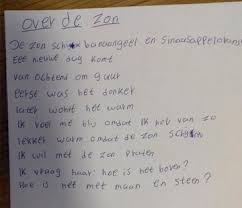 over de zon
De zon schijnt banaangeel en sinaasappeloranje
Een nieuwe dag komt
van ochtend om 9 uur
eerst was het donker
later wordt het warm
Ik voel me blij omdat ik heb van zo
lekker warm omdat de zon schijnt
Ik wil met de zon praten
Ik vraag haar: hoe is het boven?
Hoe is het met maan en sterren?